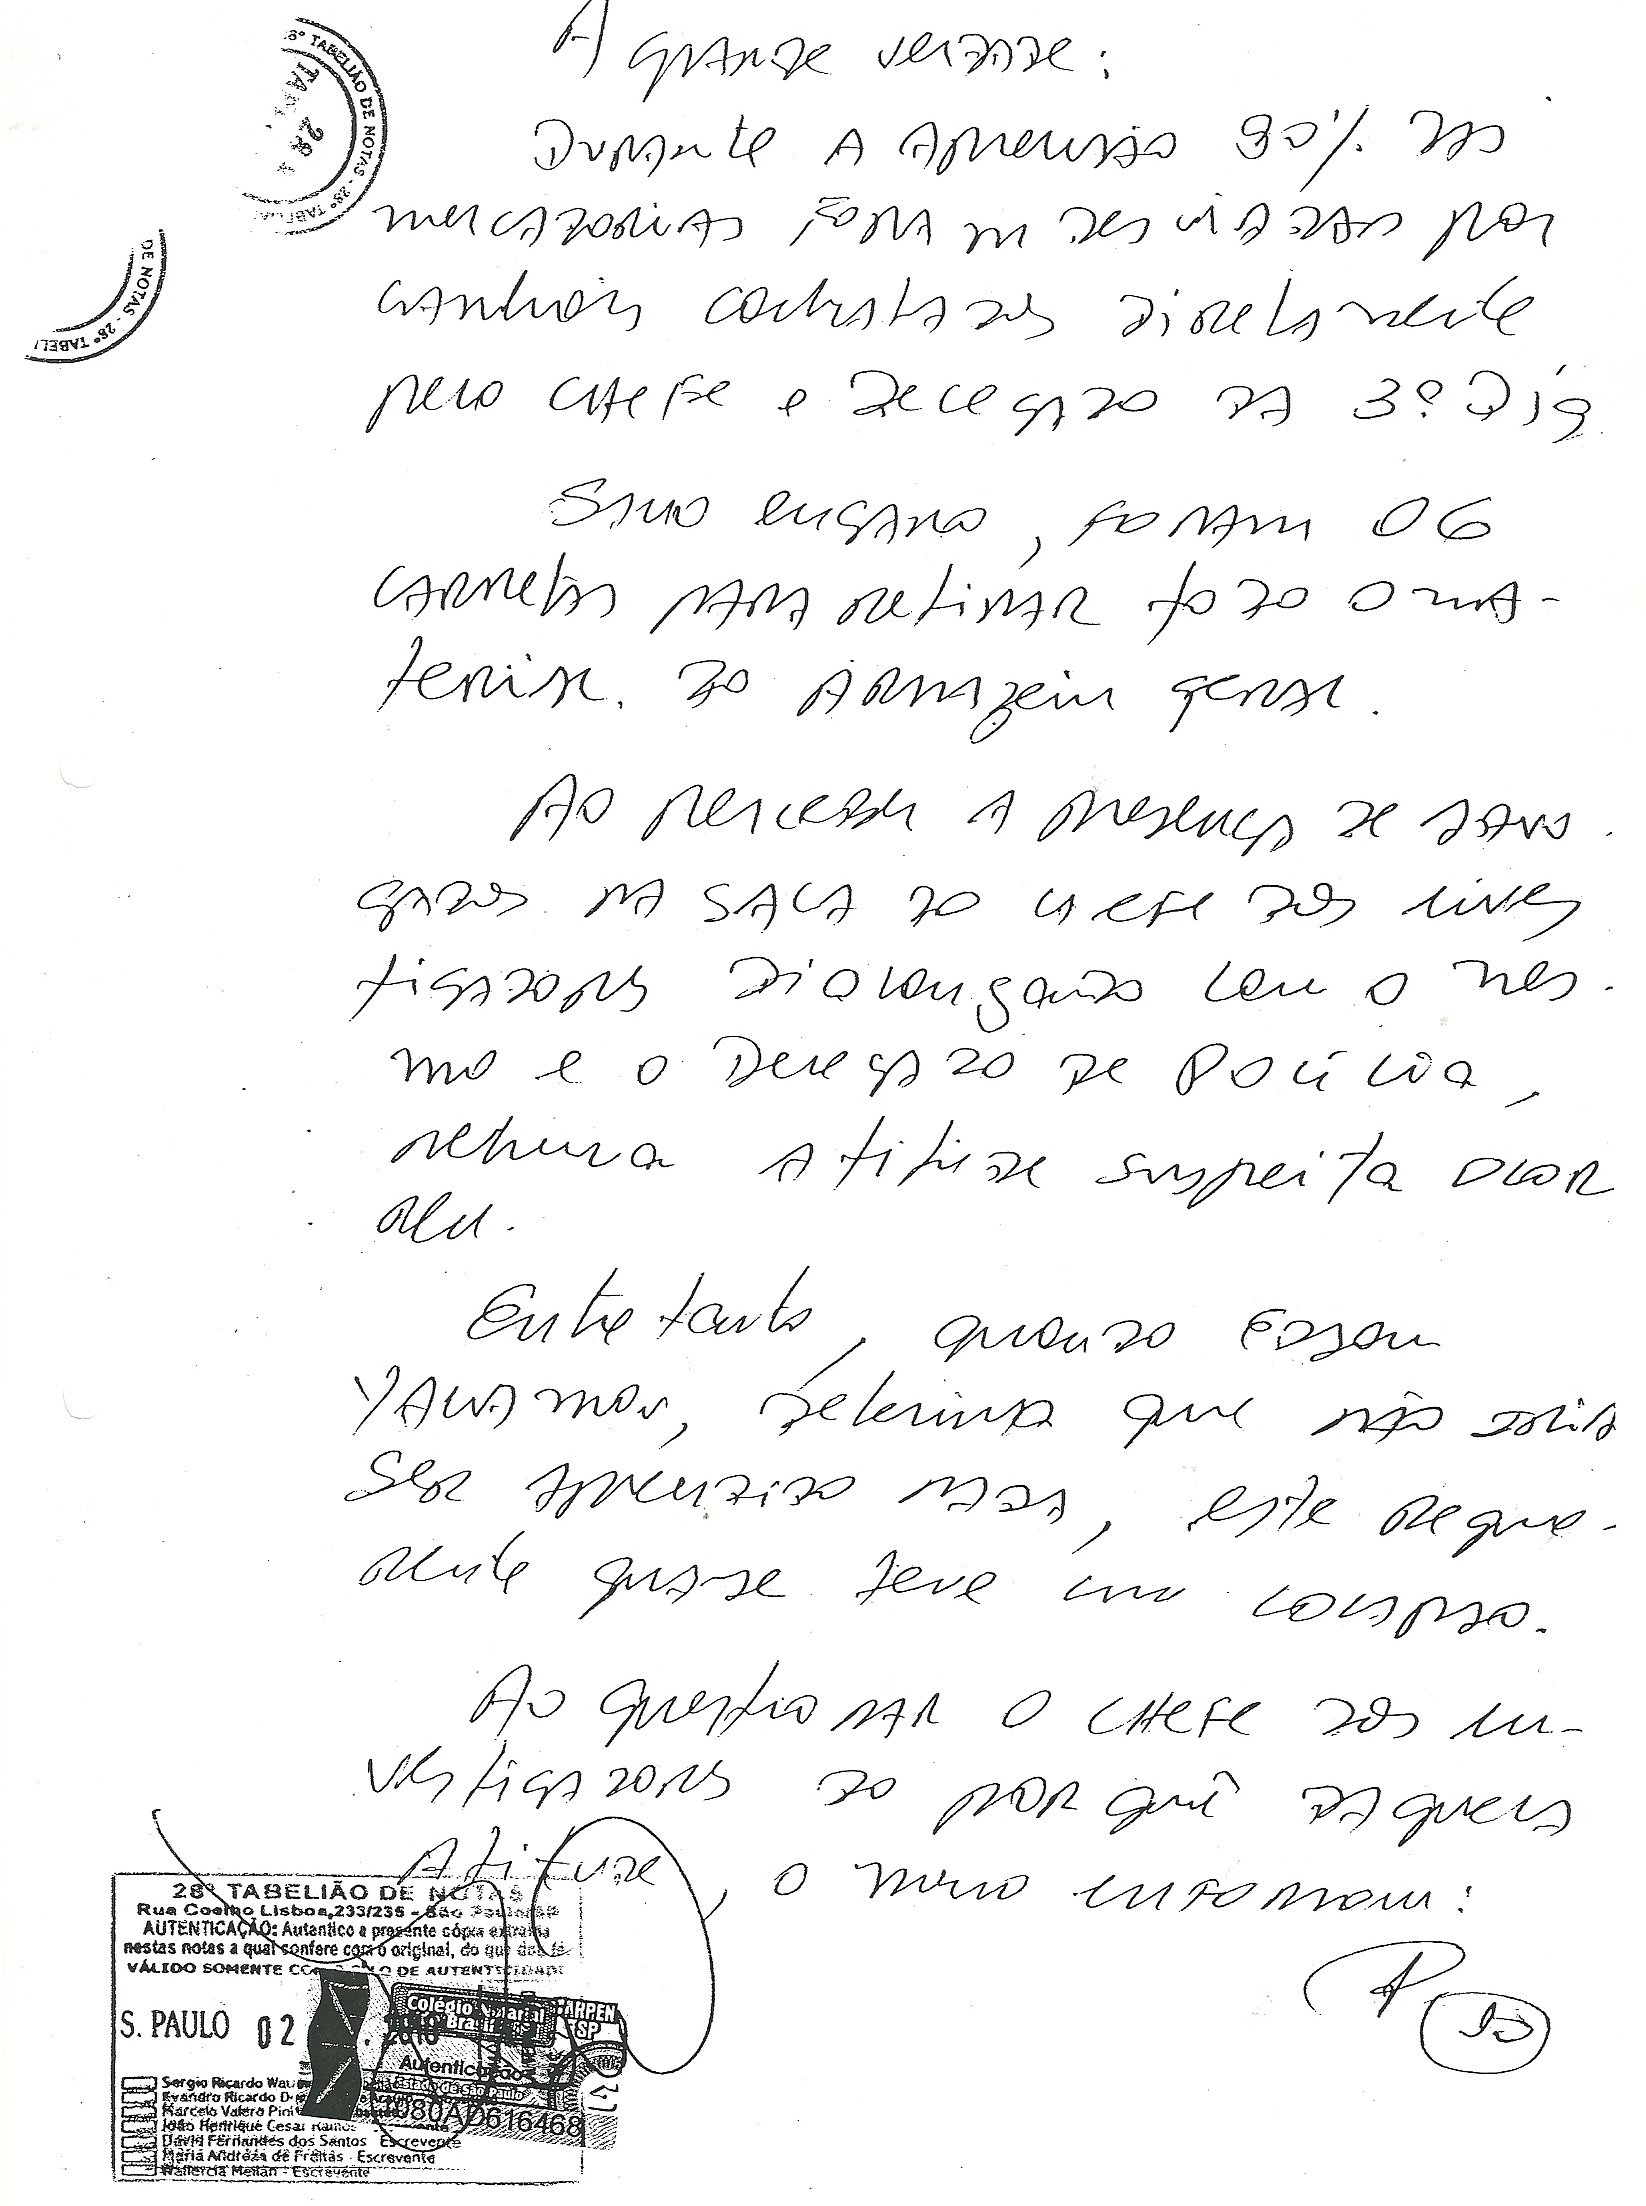 A grande verdade:
Durante a apreensão 90% das
mercadorias foram desviadas por
caminhões contratados diretamente
pelo chefe e delegado da 3ª Dig.
Salvo engano, foram 06
carretas para retirar todo o ma-
terial do armazém geral.
Ao perceber a presença de advo
gados na sala do chefe dos inves
tigadores dialongando com o mes.
mo e o Delegado de Polícia,
nenhuma atitude suspeita ocor
reu.
Entretanto, quando Edson
determina que não podia
ser apreendido nada, este reque-
rente quase teve um colapso.
Ao questionar o chefe dos in-
vestigadores do por quê daquela
atitude, o mesmo informou:
28º TABELIÃO DE NOTAS
Rua Coelho Lisboa,233/235 - São Paulo/SP
AUTENTICAÇÃO: Autentico a presente cópia extraída
nestas notas a qual confere com o original, do que dou fé
VÁLIDO SOMENTE COM SELO DE AUTENTICIDADE
S. PAULO 02
Colégio Notarial
do Brasil
ARPEN
SP
Autenticação
Estado de São Paulo
1080AD616468
Sergio Ricardo
Evandro Ricardo
Marcelo Valero
João Henrique Cesar Ramos
David Fernandes dos Santos - Escrevente
Maria Andréza de Freitas - Escrevente
Escrevente
28º TABELIÃO DE NOTAS - 28º
DE NOTAS - 28º TABELI